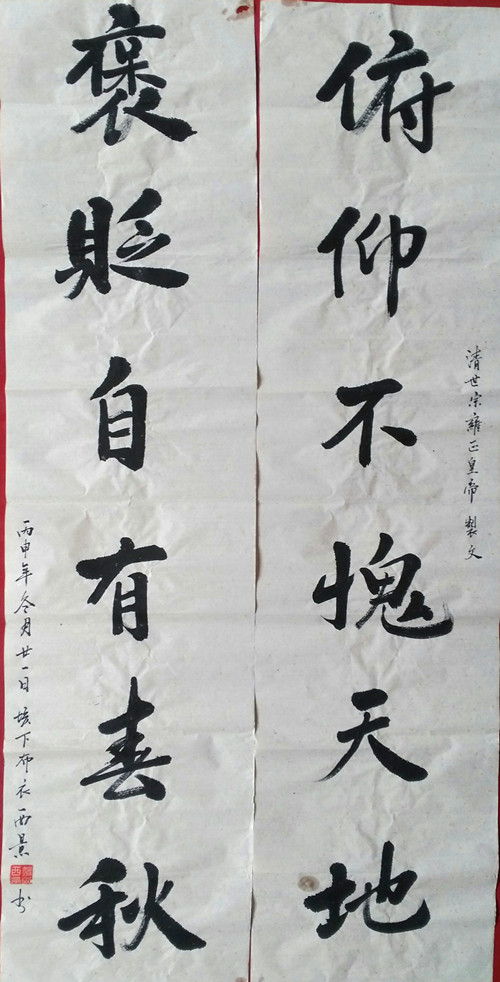 俯仰不愧天地
清世宗雍正皇帝製文
褒貶自有春秋
丙申年冬月廿一日垓下布衣西景
书